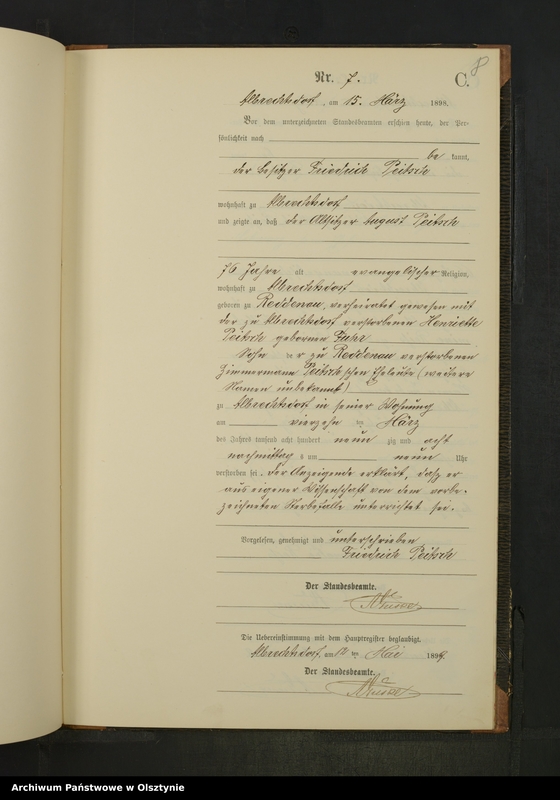 8
Nr. 7. C.
Albrechtsdorf, am 15. März 1898.
Vor dem unterzeichneten Standesbeamten erschien heute, der Per-
sönlichkeit nach
be kannt,
der Besitzer Friedrich Peitsch
wohnhaft zu Albrechtsdorf
und zeigte an, daß der Altsitzer August Peitsch
76 Jahre alt evangelischer Religion,
wohnhaft zu Albrechtsdorf
geboren zu Reddenau, verheiratet gewesen mit
der zu Albrechtsdorf verstorbenen Henriette
Peitsch geborenen Fuhr
Sohn der zu Reddenau verstorbenen
Zimmermann Peitsch'schen Eheleute (weitere
Namen unbekannt)
zu Albrechtsdorf in seiner Wohnung
am vierzehn ten März
des Jahres tausend acht hundert neun zig und acht
nachmittag s um neun Uhr
verstorben sei. Der Anzeigende erklärt, dasz er
aus eigener Wissenschaft von dem vorbe-
zeichneten Sterbefalle unterrichtet sei.
Vorgelesen, genehmigt und unterschrieben
Friedrich Peitsch
Der Standesbeamte.
Die Uebereinstimmung mit dem Hauptregister beglaubigt.
Albrechtsdorf, am ten Mai 1899.
Der Standesbeamte.
Archiwum Państwowe w Olsztynie